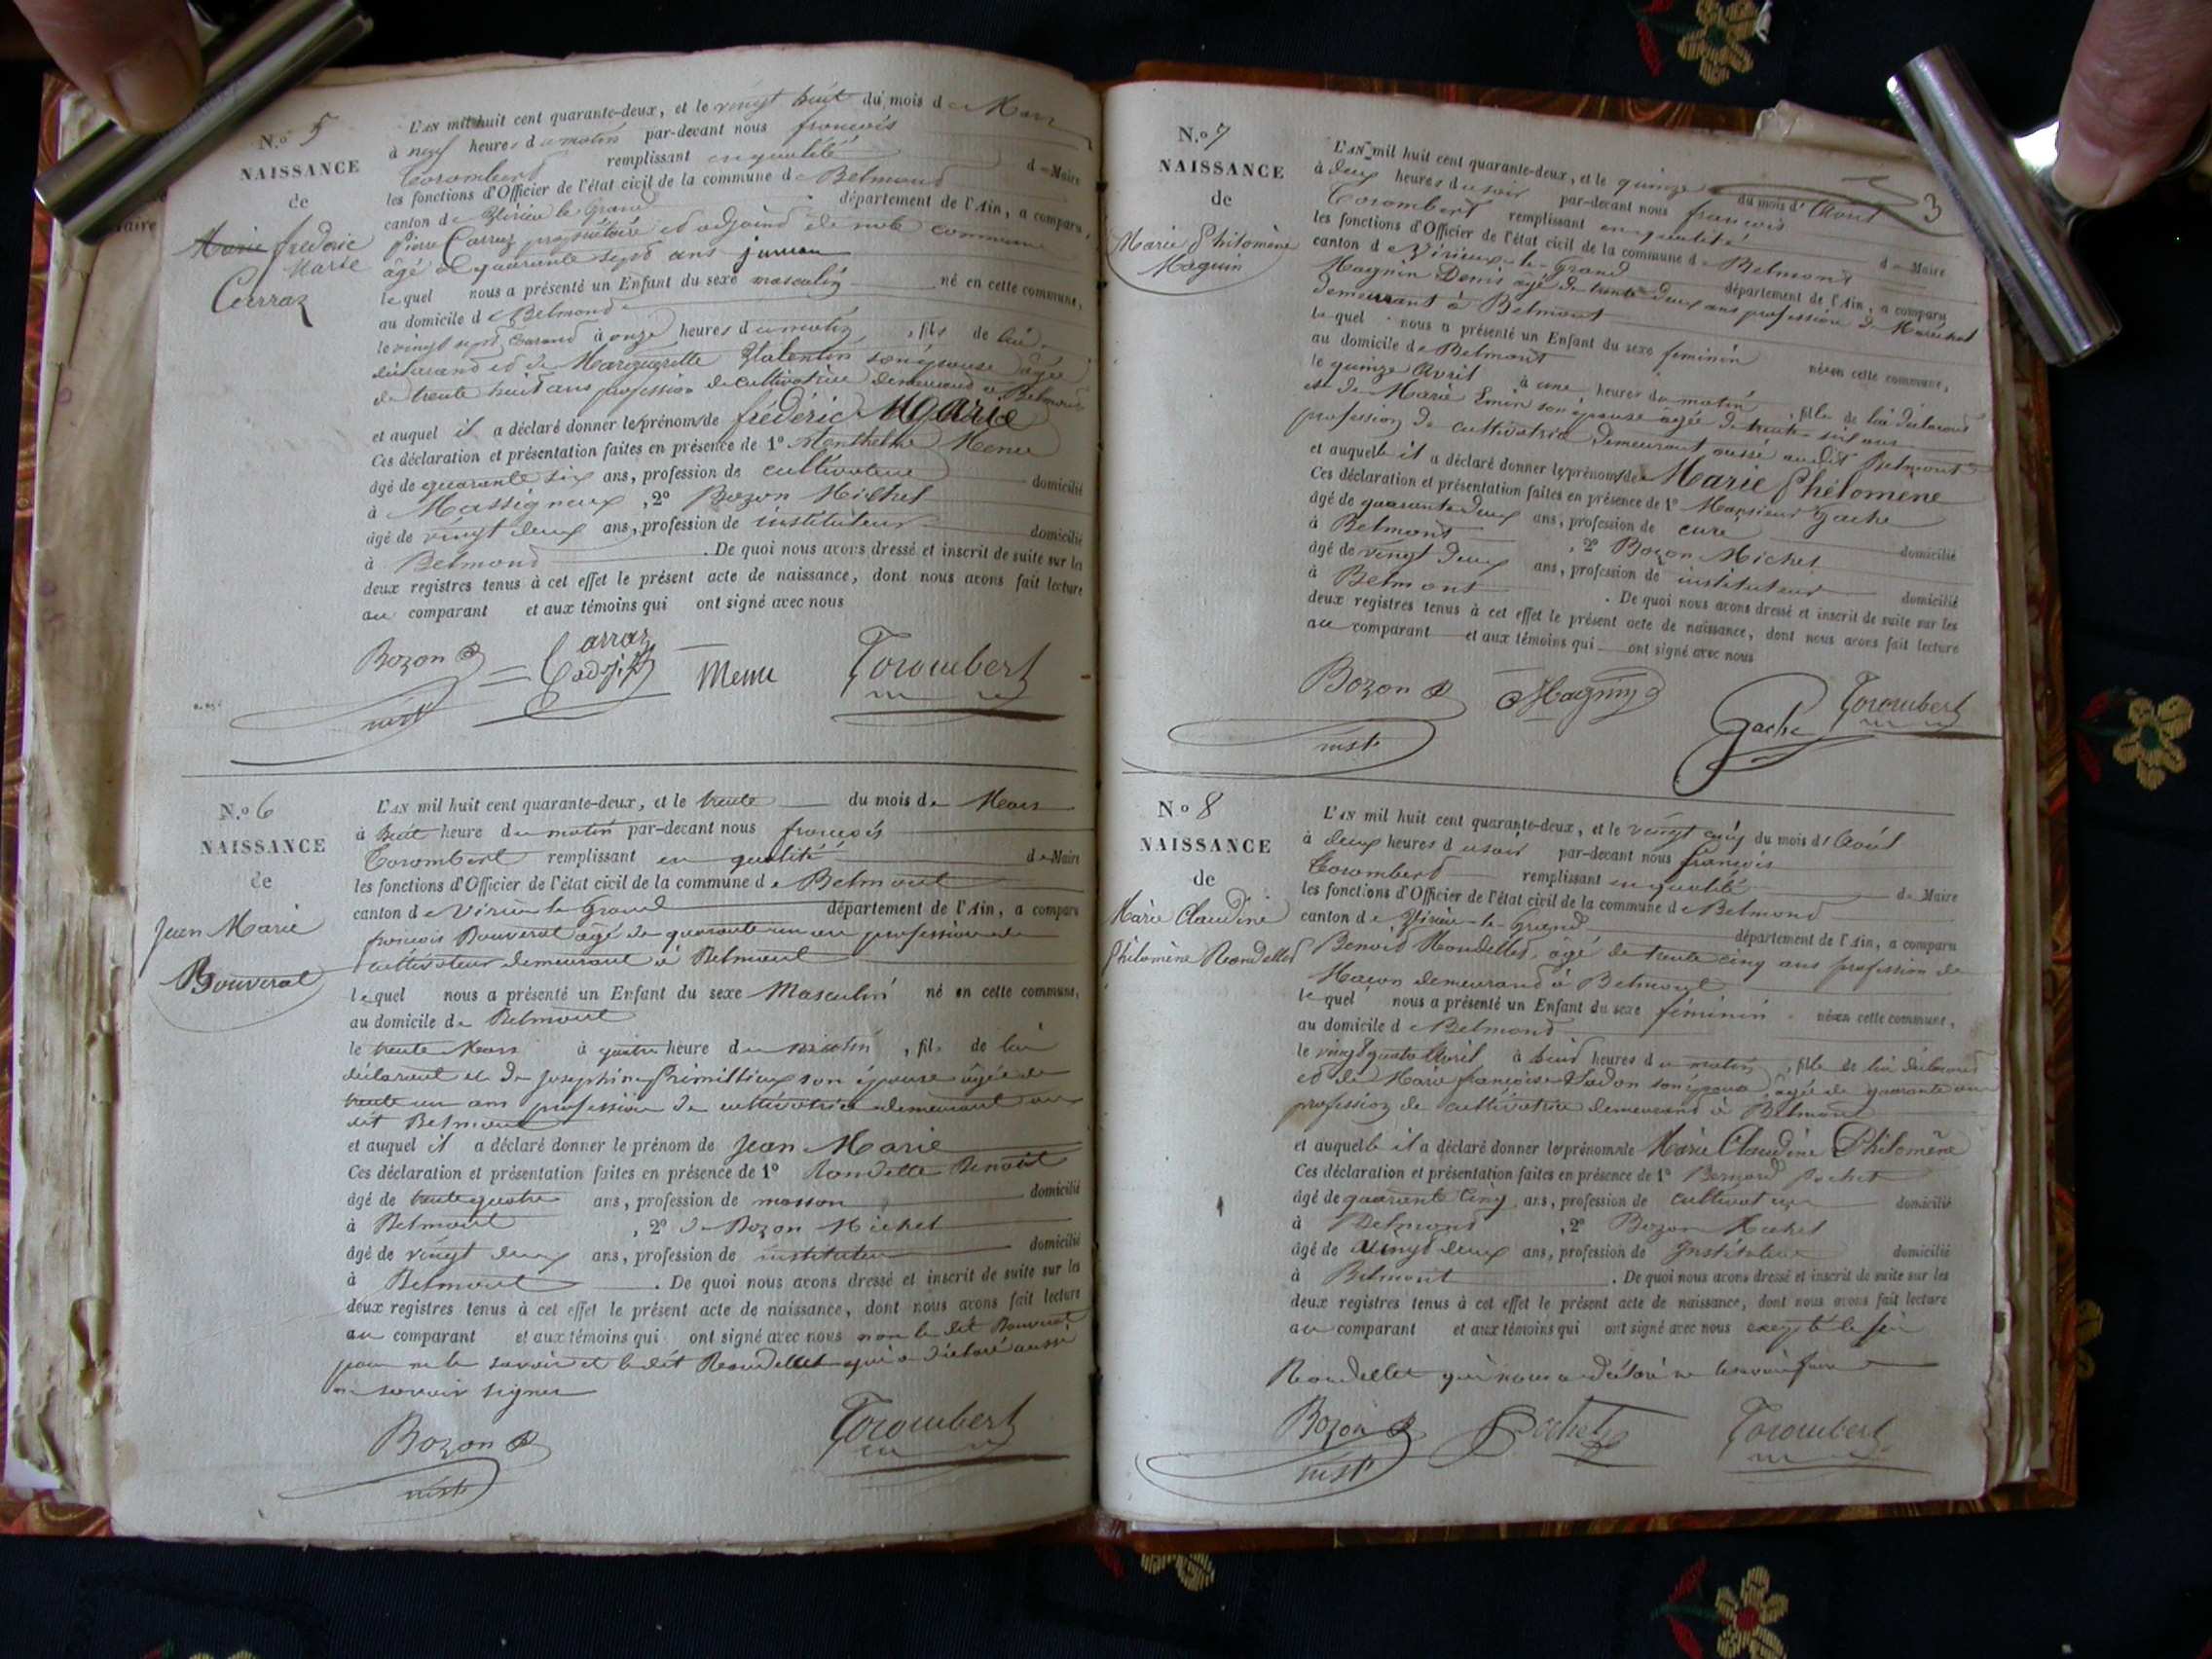 N.o 5
NAISSANCE
de
Marie frédéric
Marie
Carraz
L'AN mil huit cent quarante-deux, et le vingt huit du mois de Mars
à neuf heures du matin par-devant nous françois
Corombert remplissant en qualité de Maire
les fonctions d'Officier de l'état civil de la commune de Belmond
canton de Virieu le Grand département de l'Ain, a comparu
pierre Carraz propriétaire et adjoind de notre commune
âgé de quarante sept ans
lequel nous a présenté un Enfant du sexe masculin né en cette commune,
au domicile de Belmond
le vingt sept Courand à onze heures du matin, fils de lui
déclarand et de Margueritte Valentin son épouse âgée
de trente huit ans profession de cultivatrice demeurand à Belmond
et auquel il a déclaré donner les prénoms de frédéric Marie
Ces déclaration et présentation faites en présence de 1º Menthelme Menu
âgé de quarante six ans, profession de cultivateur domicilié
à Massigneux, 2º Bozon Michel
âgé de vingt deux ans, profession de instituteur domicilié
à Belmond. De quoi nous avons dressé et inscrit de suite sur les
deux registres tenus à cet effet le présent acte de naissance, dont nous avons fait lecture
au comparant et aux témoins qui ont signé avec nous
Bozon Carraz adjt Menu Corombert
N.o 6
NAISSANCE
de
Jean Marie
Bouverat
L'AN mil huit cent quarante-deux, et le trente du mois de Mars
à huit heure du matin par-devant nous françois
Corombert remplissant en qualité de Maire
les fonctions d'Officier de l'état civil de la commune de Belmont
canton de Virieu le Grand département de l'Ain, a comparu
françois Bouverat âgé de quarante un an profession de
cultivateur demeurant à Belmont
lequel nous a présenté un Enfant du sexe Masculin né en cette commune,
au domicile de Belmont
le trente Mars à quatre heure du matin, fils de lui
déclarant et de Josephine Primillieux son épouse âgée de
trente un ans profession de cultivatrice demeurant au
dit Belmont
et auquel il a déclaré donner le prénom de Jean Marie
Ces déclaration et présentation faites en présence de 1º Rondelle Benoit
âgé de trente quatre ans, profession de masson domicilié
à Belmont, 2º de Bozon Michel
âgé de vingt deux ans, profession de instituteur domicilié
à Belmont. De quoi nous avons dressé et inscrit de suite sur les
deux registres tenus à cet effet le présent acte de naissance, dont nous avons fait lecture
au comparant et aux témoins qui ont signé avec nous non le dit Bouverat
pour ne le savoir et le dit Rondellet qui a déclaré aussi
ne savoir signer
Bozon Corombert
3
N.o 7
NAISSANCE
de
Marie Philomène
Magnin
L'AN mil huit cent quarante-deux, et le quinze du mois d'Avril
à deux heures du soir par-devant nous françois
Corombert remplissant en qualité de Maire
les fonctions d'Officier de l'état civil de la commune de Belmont
canton de Virieux-le-Grand département de l'Ain, a comparu
Magnin Denis âgé de trente deux ans profession de Maréchal
demeurant à Belmont
lequel nous a présenté un Enfant du sexe feminin née en cette commune,
au domicile de Belmont
le quinze Avril à une heures du matin, fille de lui déclarant
et de Marie Emin son épouse âgée de trente six ans
profession de cultivatrice demeurant aussi audit Belmont
et auquelle il a déclaré donner les prénoms de Marie Philomène
Ces déclaration et présentation faites en présence de 1º Monsieur Gache
âgé de quarante deux ans, profession de curé domicilié
à Belmont, 2º Bozon Michel
âgé de vingt deux ans, profession de instituteur domicilié
à Belmont. De quoi nous avons dressé et inscrit de suite sur les
deux registres tenus à cet effet le présent acte de naissance, dont nous avons fait lecture
au comparant et aux témoins qui ont signé avec nous
Bozon Magnin Gache Corombert
No 8
NAISSANCE
de
Marie Claudine
Philomène Rondellet
L'AN mil huit cent quarante-deux, et le vingt cinq du mois d'Avril
à deux heures du soir par-devant nous françois
Corombert remplissant en qualité de Maire
les fonctions d'Officier de l'état civil de la commune de Belmond
canton de Virieu-le-Grand département de l'Ain, a comparu
Benoid Rondellet, âgé de trente cinq ans profession de
Maçon demeurand à Belmont
lequel nous a présenté un Enfant du sexe féminin née en cette commune,
au domicile de Belmond
le vingt quatre Avril à huit heures du matin, fille de lui déclarand
et de Marie françoise Vadon son épouse âgée de quarante an
profession de cultivatrice demeurand à Belmond
et auquelle il a déclaré donner les prénoms de Marie Claudine Philomène
Ces déclaration et présentation faites en présence de 1º Bernard Pochet
âgé de quarante cinq ans, profession de cultivateur domicilié
à Belmond, 2º Bozon Michel
âgé de vingt deux ans, profession de Instituteur domicilié
à Belmont. De quoi nous avons dressé et inscrit de suite sur les
deux registres tenus à cet effet le présent acte de naissance, dont nous avons fait lecture
au comparant et aux témoins qui ont signé avec nous excepté le
Rondellet qui nous a déclaré ne le savoir faire
Bozon Pochet Corombert